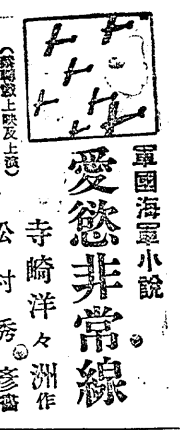 軍國海軍小説
愛慾非常線
寺崎洋々洲作
村秀彥
上映及上演)